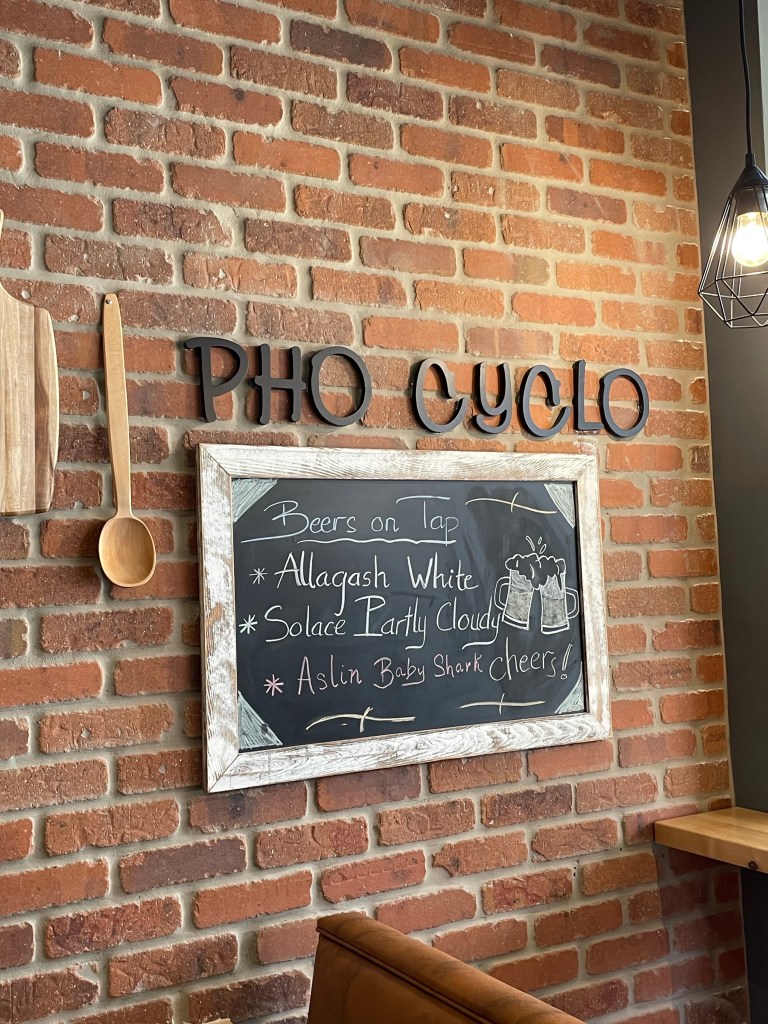 PHO CYCLO
Beers on Tap
* Allagash White
* Solace Partly Cloudy
* Aslin Baby Shark
cheers!!